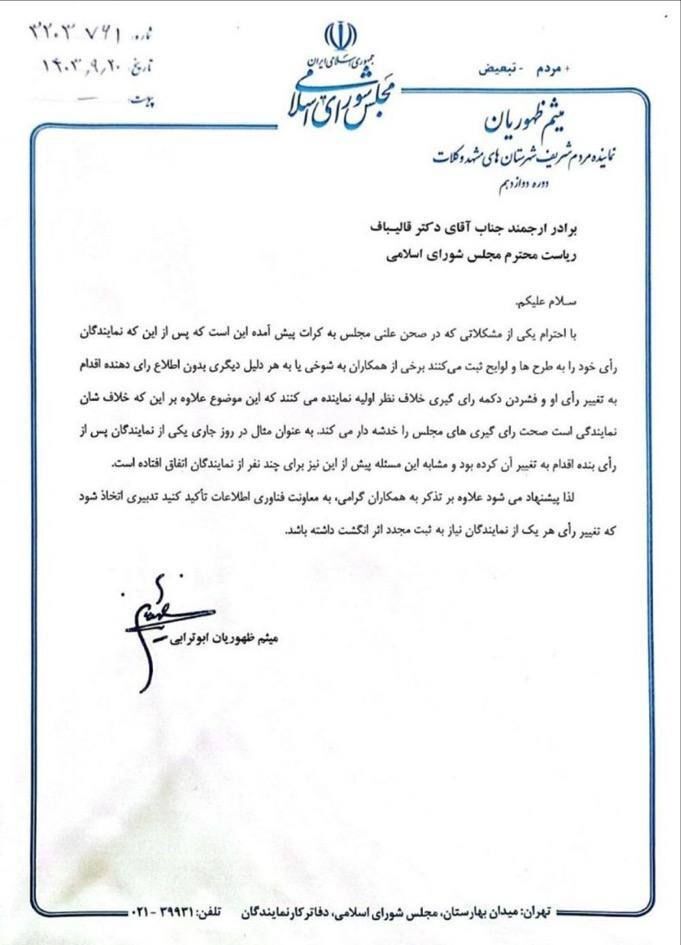 شماره: ۳۲۰۳۷۶۱
تاریخ: ۱۴۰۳,۹,۲۰
پیوست:
جمهوری اسلامی ایران
مجلس شورای اسلامی
+ مردم - تبعیض
میثم ظهوریان
نماینده مردم شریف شهرستان های مشهد و کلات
دوره دوازدهم
برادر ارجمند جناب آقای دکتر قالیباف
ریاست محترم مجلس شورای اسلامی
سلام علیکم.
با احترام یکی از مشکلاتی که در صحن علنی مجلس به کرات پیش آمده این است که پس از این که نمایندگان
رأی خود را به طرح ها و لوایح ثبت می‌کنند برخی از همکاران به شوخی یا به هر دلیل دیگری بدون اطلاع رای دهنده اقدام
به تغییر رأی او و فشردن دکمه رای گیری خلاف نظر اولیه نماینده می کنند که این موضوع علاوه بر این که خلاف شان
نمایندگی است صحت رای گیری های مجلس را خدشه دار می کند. به عنوان مثال در روز جاری یکی از نمایندگان پس از
رأی بنده اقدام به تغییر آن کرده بود و مشابه این مسئله پیش از این نیز برای چند نفر از نمایندگان اتفاق افتاده است.
لذا پیشنهاد می شود علاوه بر تذکر به همکاران گرامی، به معاونت فناوری اطلاعات تأکید کنید تدبیری اتخاذ شود
که تغییر رأی هر یک از نمایندگان نیاز به ثبت مجدد اثر انگشت داشته باشد.
میثم ظهوریان ابوترابی
تهران: میدان بهارستان، مجلس شورای اسلامی، دفاتر کار نمایندگان تلفن: ۳۹۹۳۱ - ۰۲۱